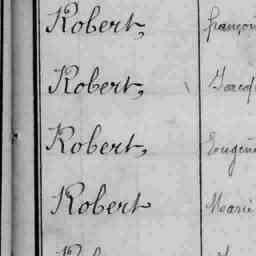 Robert, françois
Robert, Jacq
Robert, Eugén
Robert Marie